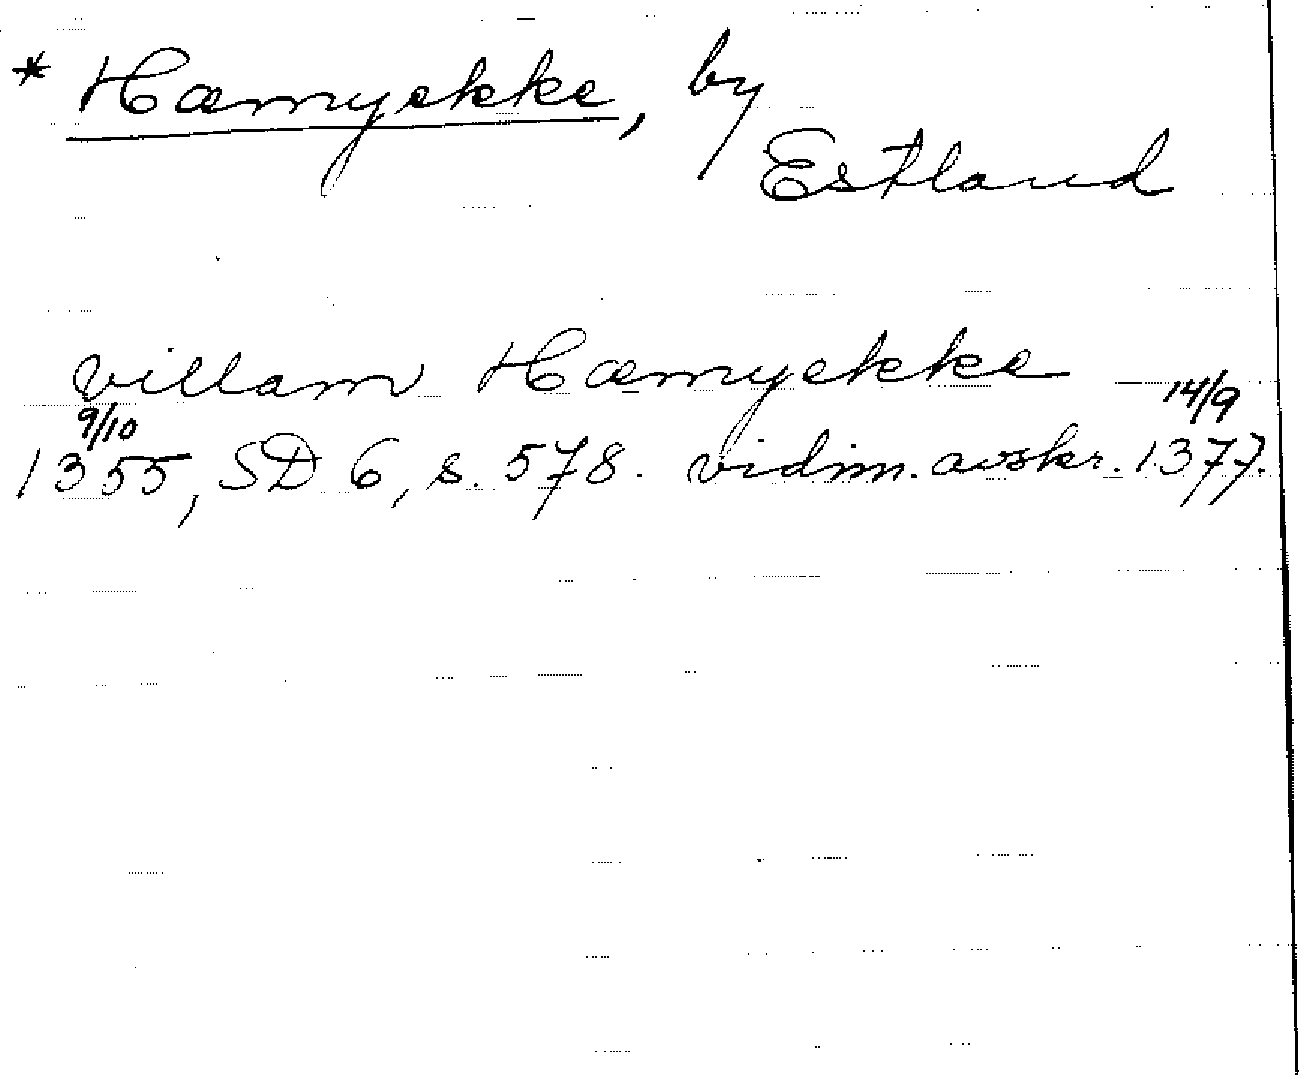 * Hæmyekke, by
Estland
villam Hæmyekke
9/10 14/9
1355, SD 6, s. 578. vidim. avskr. 1377.